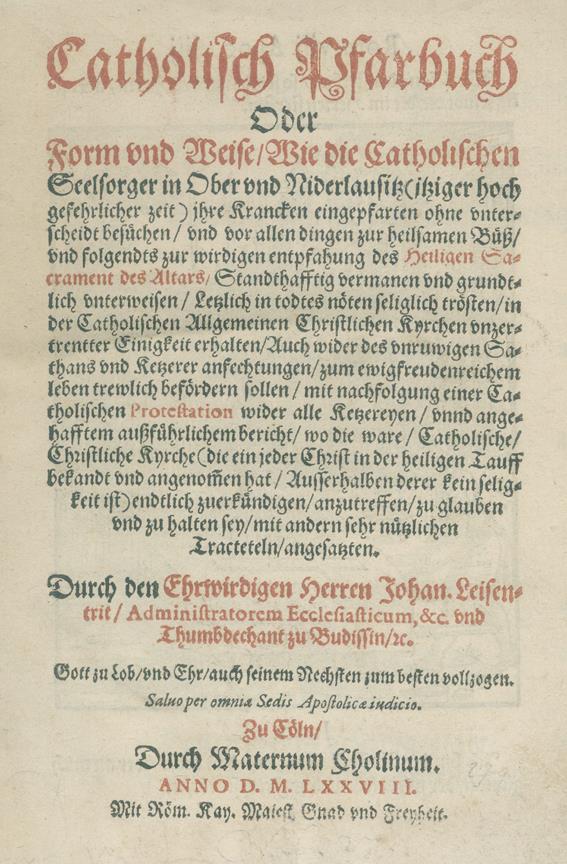 Catholisch Pfarbuch
Oder
Form vnd Weise/Wie die Catholischen
Seelsorger in Ober vnd Niderlausitz (itziger hoch
gefehrlicher zeit) jhre Krancken eingepfarten ohne vnter-
scheidt besuͤchen/ vnd vor allen dingen zur heilsamen Buͤß/
vnd folgendts zur wirdigen entpfahung des Heiligen Sa-
crament des Altars, Standthafftig vermanen vnd grundt-
lich vnterweisen/ Letzlich in todtes noͤten seliglich troͤsten/in
der Catholischen Allgemeinen Christlichen Kyrchen vnzer-
trentter Einigkeit erhalten/Auch wider des vnruwigen Sa-
thans vnd Ketzerer anfechtungen/zum ewigfreudenreichem
leben trewlich befoͤrdern sollen/ mit nachfolgung einer Ca-
tholischen Protestation wider alle Ketzereyen/ vnnd ange-
hafftem außfuͤhrlichem bericht/ wo die ware/ Catholische/
Christliche Kyrche (die ein jeder Christ in der heiligen Tauff
bekandt vnd angenom̃en hat/ Ausserhalben derer kein selig-
keit ist) endtlich zuerkuͤndigen/anzutreffen/zu glauben
vnd zu halten sey/mit andern sehr nuͤtzlichen
Tracteteln/angesatzten.
Durch den Ehrwirdigen Herren Johan. Leisen-
trit/ Administratorem Ecclesiasticum, &c. vnd
Thumbdechant zu Budissin/ꝛc.
Gott zu Lob/vnd Ehr/auch seinem Nechsten zum besten vollzogen.
Saluo per omnia Sedis Apostolicæ iudicio.
Zu Coͤln/
Durch Maternum Cholinum.
ANNO D. M. LXXVIII.
Mit Roͤm. Kay. Maiest. Gnad vnd Freyheit.